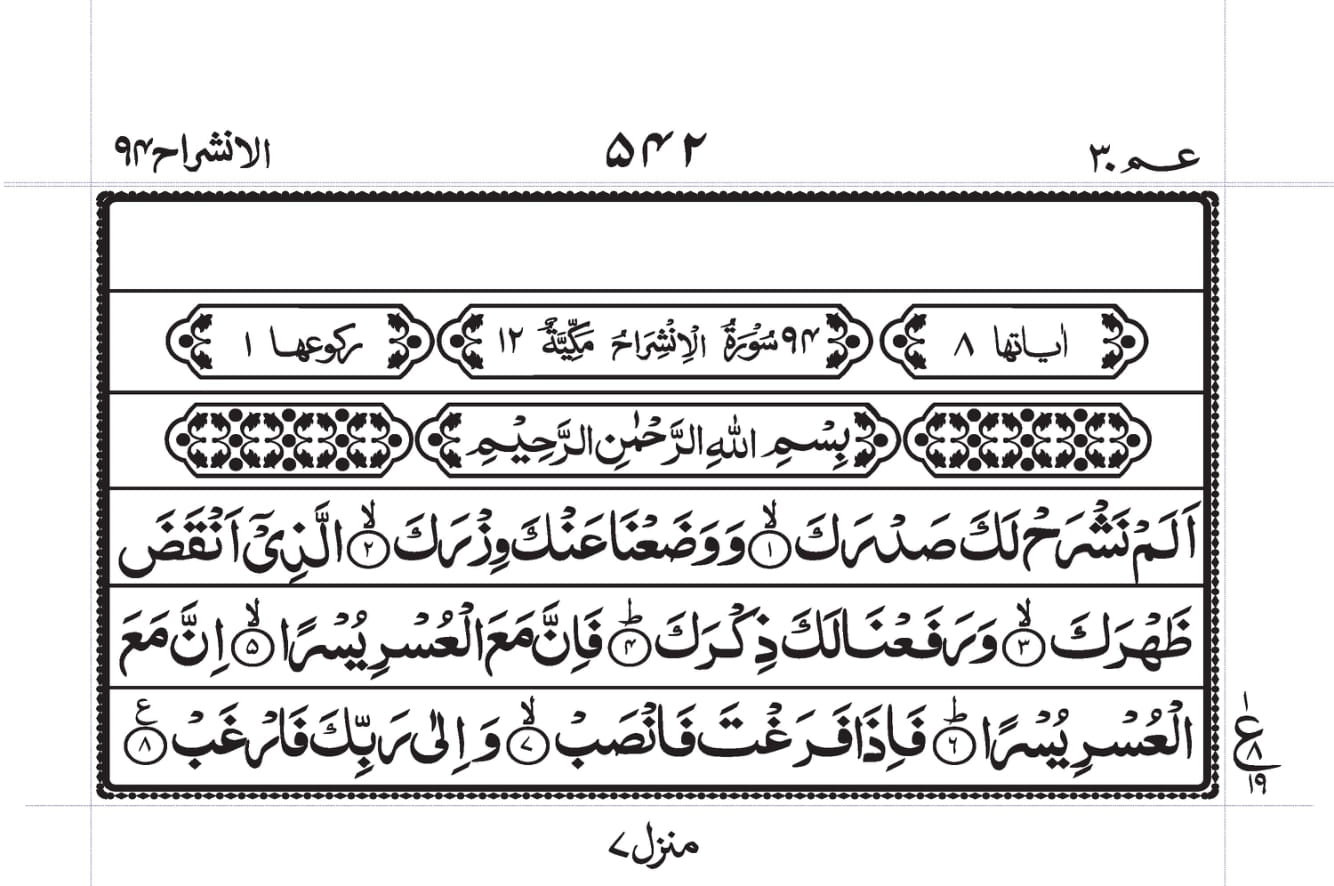 عم ۳۰ ۵۴۲ الانشراح ۹۴
اٰیاتها ۸ ۹۴ سُوْرَةُ الْاِنْشِرَاحِ مَكِّيَّةٌ ۱۲ رکوعها ۱
بِسْمِ اللّٰهِ الرَّحْمٰنِ الرَّحِيْمِ
اَلَمْ نَشْرَحْ لَكَ صَدْرَكَ ۙ‏﴿۱﴾ وَوَضَعْنَا عَنْكَ وِزْرَكَ ۙ‏﴿۲﴾ الَّذِيْۤ اَنْقَضَ
ظَهْرَكَ ۙ‏﴿۳﴾ وَرَفَعْنَا لَكَ ذِكْرَكَ ؕ‏﴿۴﴾ فَاِنَّ مَعَ الْعُسْرِ يُسْرًا ۙ‏﴿۵﴾ اِنَّ مَعَ
الْعُسْرِ يُسْرًا ؕ‏﴿۶﴾ فَاِذَا فَرَغْتَ فَانْصَبْ ۙ‏﴿۷﴾ وَاِلٰى رَبِّكَ فَارْغَبْ ﴿۸﴾ ع
۱ ع ۸ ۱۹
منزل ۷